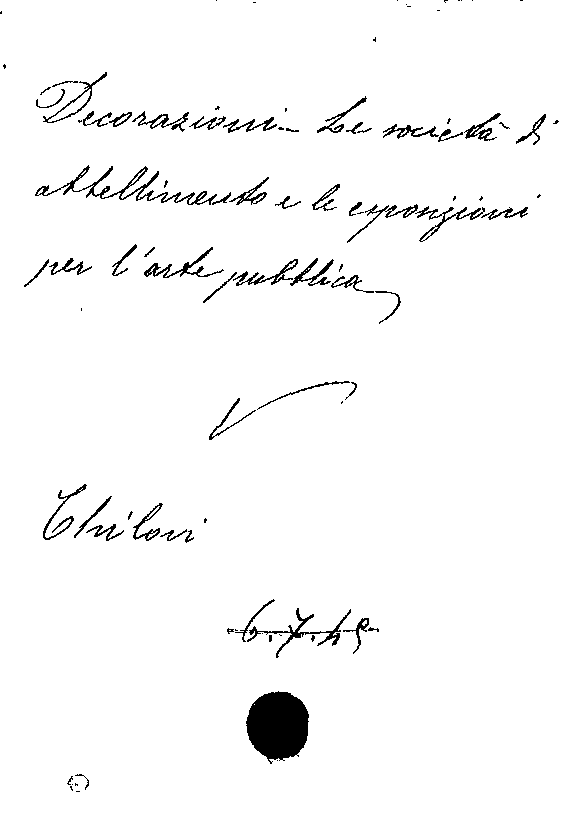 Decorazioni – Le società di
abbellimento e le esposizioni
per l'arte pubblica
Chilovi
6.7.45